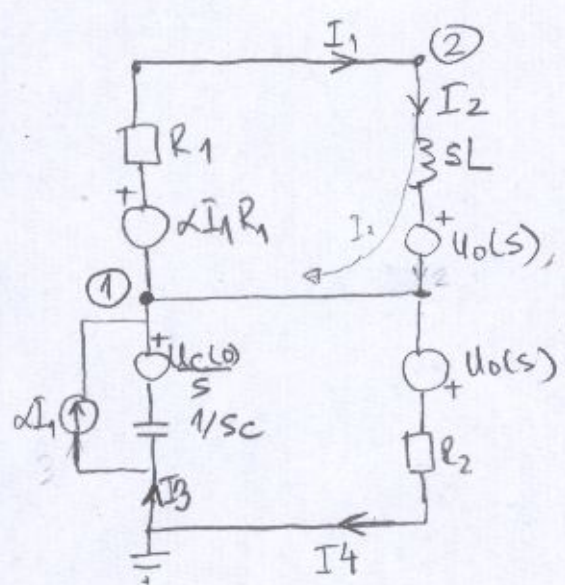 I1
②
I2
R1
sL
+
αI1R1
I2
+
u0(s)
①
+
uc(0)/s
u0(s)
+
αI1
1/sc
R2
I3
I4